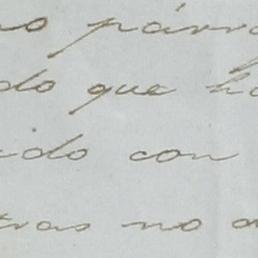 no párra
do que ha
ido con
tras no a